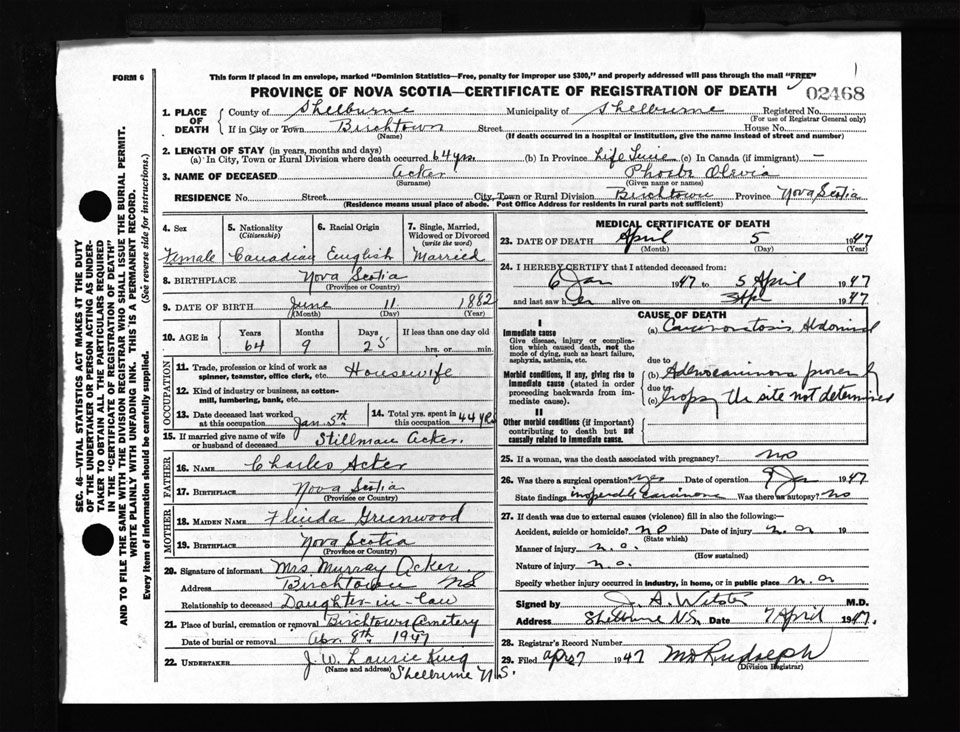 FORM 6
This form if placed in an envelope, marked "Dominion Statistics—Free, penalty for improper use $300," and properly addressed will pass through the mail "FREE"
PROVINCE OF NOVA SCOTIA—CERTIFICATE OF REGISTRATION OF DEATH 02468
1. PLACE OF DEATH County of Shelburne Municipality of Shelburne Registered No.
(For use of Registrar General only)
If in City or Town Birchtown Street House No.
(Name) (If death occurred in a hospital or institution, give the name instead of street and number)
2. LENGTH OF STAY (in years, months and days)
(a) In City, Town or Rural Division where death occurred 64 yrs (b) In Province Life Time (c) In Canada (if immigrant) —
3. NAME OF DECEASED Acker Phoebe Olevia
(Surname) (Given name or names)
RESIDENCE No. Street City, Town or Rural Division Birchtown Province Nova Scotia
(Residence means usual place of abode. Post Office Address for residents in rural parts not sufficient)
4. Sex 5. Nationality (Citizenship) 6. Racial Origin 7. Single, Married, Widowed or Divorced (write the word)
Female Canadian English Married
8. BIRTHPLACE Nova Scotia
(Province or Country)
9. DATE OF BIRTH June 11 1882
(Month) (Day) (Year)
10. AGE Years Months Days If less than one day old
64 9 25 hrs. or min.
OCCUPATION
11. Trade, profession or kind of work as spinner, teamster, office clerk, etc. Housewife
12. Kind of industry or business, as cotton-mill, lumbering, bank, etc.
13. Date deceased last worked at this occupation Jan. 5th 14. Total yrs. spent in this occupation 44 yrs
15. If married give name of wife or husband of deceased Stillman Acker.
FATHER
16. NAME Charles Acker
17. BIRTHPLACE Nova Scotia
(Province or Country)
MOTHER
18. MAIDEN NAME Greenwood
19. BIRTHPLACE Nova Scotia
(Province or Country)
20. Signature of informant Mrs. Murray Acker.
Address Birchtown NS
Relationship to deceased Daughter-in-law
21. Place of burial, cremation or removal Birchtown Cemetery
Date of burial or removal Apr. 8th 1947
22. UNDERTAKER J. W. Laurie King
(Name and address) Shelburne N.S.
MEDICAL CERTIFICATE OF DEATH
23. DATE OF DEATH April 5 1947
(Month) (Day) (Year)
24. I HEREBY CERTIFY that I attended deceased from:
6 Jan 1947 to 5 April 1947
and last saw her alive on 1947
CAUSE OF DEATH
I
Immediate cause
Give disease, injury or complication which caused death, not the mode of dying, such as heart failure, asphyxia, asthenia, etc.
(a) Carcinomatosis Abdominal
due to
Morbid conditions, if any, giving rise to immediate cause (stated in order proceeding backwards from immediate cause).
(b) Adenocarcinoma proven by
due to
(c) biopsy The site not determined
II
Other morbid conditions (if important) contributing to death but not causally related to immediate cause.
25. If a woman, was the death associated with pregnancy? no
26. Was there a surgical operation? yes Date of operation 9 Jan 1947
State findings inoperable Carcinoma Was there an autopsy? no
27. If death was due to external causes (violence) fill in also the following:—
Accident, suicide or homicide? no Date of injury n.a. 19
(State which)
Manner of injury n.a.
(How sustained)
Nature of injury n.a.
Specify whether injury occurred in industry, in home, or in public place n.a
Signed by M.D.
Address Shelburne N.S. Date 7 April 1947.
28. Registrar's Record Number
29. Filed Apr 7 1947 M D Rudolph
(Division Registrar)
SEC. 46—VITAL STATISTICS ACT MAKES IT THE DUTY
OF THE UNDERTAKER OR PERSON ACTING AS UNDER-
TAKER TO OBTAIN ALL THE PARTICULARS REQUIRED
IN THE "CERTIFICATE OF REGISTRATION OF DEATH"
AND TO FILE THE SAME WITH THE DIVISION REGISTRAR WHO SHALL ISSUE THE BURIAL PERMIT.
WRITE PLAINLY WITH UNFADING INK. THIS IS A PERMANENT RECORD.
Every item of information should be carefully supplied. (See reverse side for instructions.)